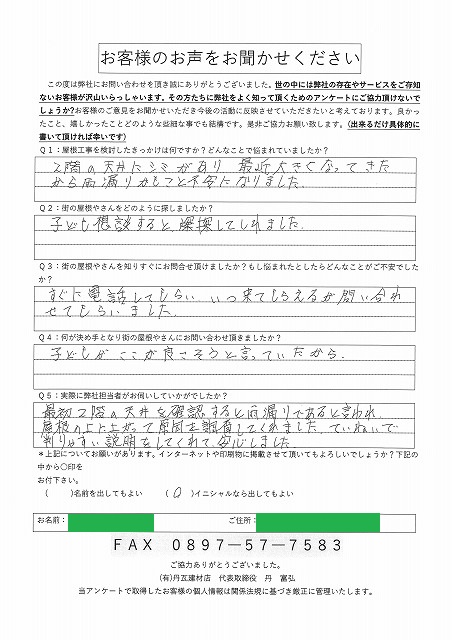 お客様のお声をお聞かせください
この度は弊社にお問い合わせを頂き誠にありがとうございました。世の中には弊社の存在やサービスをご存知
ないお客様が沢山いらっしゃいます。その方たちに弊社をよく知って頂くためのアンケートにご協力頂けないで
しょうか？お客様のご意見をお聞かせいただき今後の活動に反映させていただきたいと考えております。良かっ
たこと、嬉しかったことどのような些細な事でも結構です。是非ご協力お願い致します。（出来るだけ具体的に
書いて頂ければ幸いです）
Q１：屋根工事を検討したきっかけは何ですか？どんなことで悩まれていましたか？
2階の天井にシミがあり 最近大きくなってきた
から雨漏りかもっと不安になりました。
Q２：街の屋根やさんをどのように探しましたか？
子ども相談すると探してくれました。
Q３：街の屋根やさんを知りすぐにお問合せ頂けましたか？もし悩まれたとしたらどんなことがご不安でした
か？
すぐに電話してもらい、いつ来てもらえるか問い合わ
せてもらいました。
Q４：何が決め手となり街の屋根やさんにお問い合わせ頂きましたか？
子どもが ここが良さそうと言っていたから。
Q５：実際に弊社担当者がお伺いしていかがでしたか？
最初2階の天井を確認すると雨漏りであると言われ、
屋根の上に上がって原因を調査してくれました。ていねいで
判りやすい説明をしてくれて、安心しました
＊上記についてお願いがあります。インターネットや印刷物に掲載させて頂いてもよろしいでしょうか？下記の
中から〇印を
お付下さい。
（　　）名前を出してもよい　　（ O ）イニシャルなら出してもよい
お名前：　　ご住所：
FAX 0897－57－7583
ご協力ありがとうございました。
(有)丹瓦建材店　代表取締役　丹　富弘
当アンケートで取得したお客様の個人情報は関係法規に基づき厳正に管理いたします。